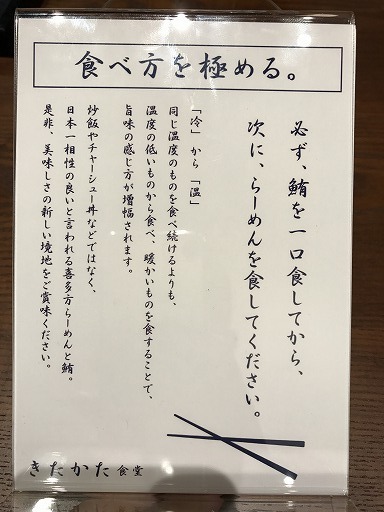 食べ方を極める。
必ず、鮪を一口食してから、
次に、らーめんを食してください。
「冷」から「温」
同じ温度のものを食べ続けるよりも、
温度の低いものから食べ、暖かいものを食することで、
旨味の感じ方が増幅されます。
炒飯やチャーシュー丼などではなく、
日本一相性の良いと言われる喜多方らーめんと鮪。
是非、美味しさの新しい境地をご賞味ください。
きたかた食堂